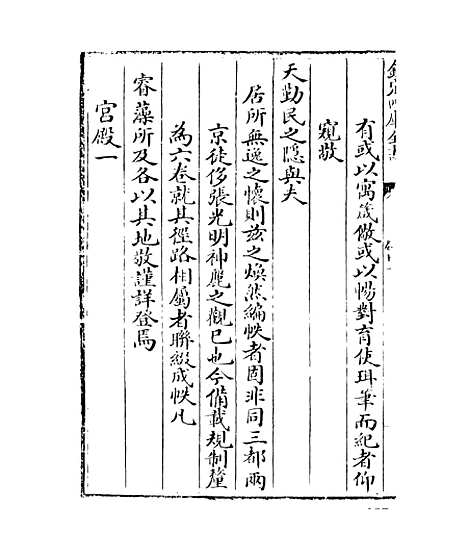 有或以寓箴儆或以暢對育使珥筆而紀者仰
窺敬
天勤民之隱與夫
居所無逸之懷則茲之煥然編帙者固非同三都兩
京徒侈張光明神麗之觀已也今備載規制釐
為六卷就其徑路相屬者聯綴成帙凡
睿藻所及各以其地敬謹詳登焉
宫殿一